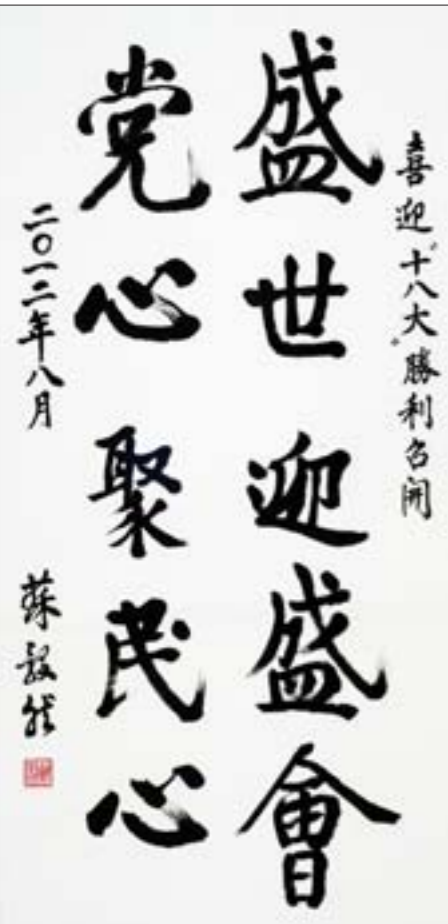 喜迎"十八大"勝利召開
盛世迎盛會
党心聚民心
二〇一二年八月
蘇毅然